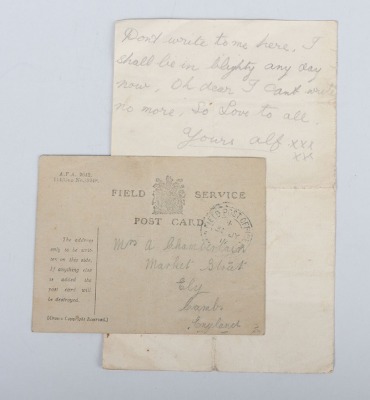 Don't write to me here. I
shall be in blighty any day
now. Oh dear I can't write
no more. So Love to all.
Yours alf xxx
xxx
FIELD SERVICE
POST CARD
The address
only to be writ-
ten on this side.
If anything else
is added the
post card will
be destroyed.
Mrs A
Market Street
Ely
Cambs
England